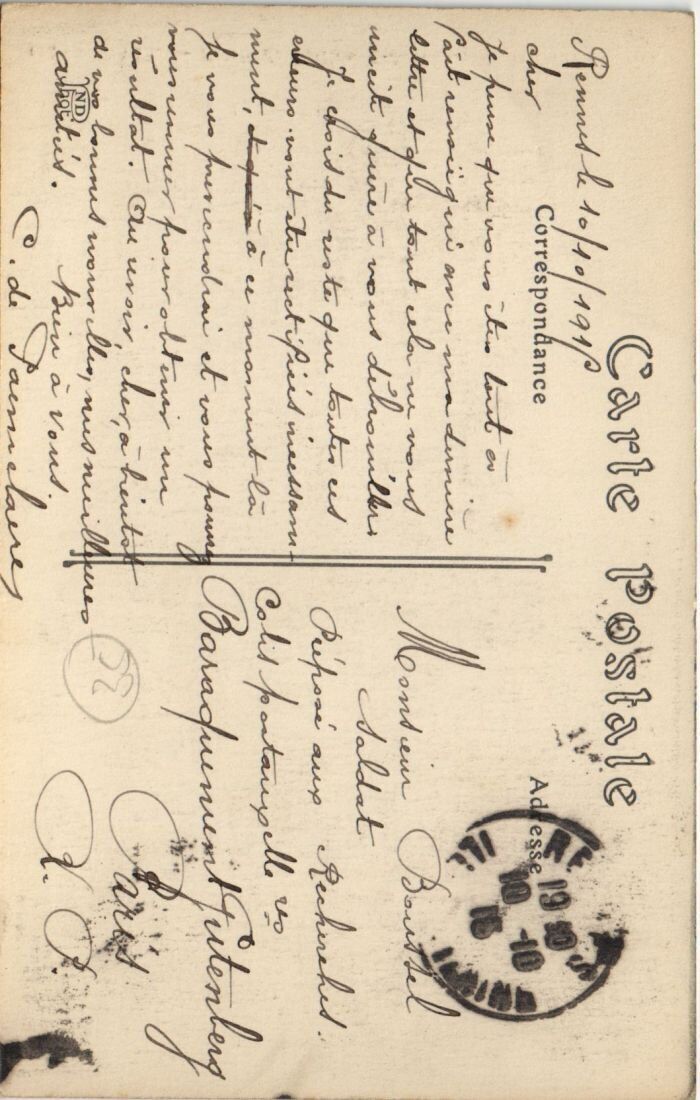 Carte Postale
Correspondance
Adresse
Rennes le 10/10/191
Cher
Je pense que vous êtes tout à
fait renseigné avec ma dernière
lettre et que tout cela ne vous
incite guère à vous débrouiller.
Je crois du reste que toutes ces
erreurs vont être rectifiées incessam-
ment, à ce moment là
je vous préviendrai et vous pourrez
vous pour obtenir un
résultat. Au revoir, cher, à bientôt
de vos bonnes nouvelles, mes meilleures
amitiés.
Bien à vous.
C. de
ND
Monsieur Boussel
Soldat
Préposé aux Recherches.
Colis postaux
Baraquement Gutenberg
Paris
R. P.
52
19 10
10 -10
15